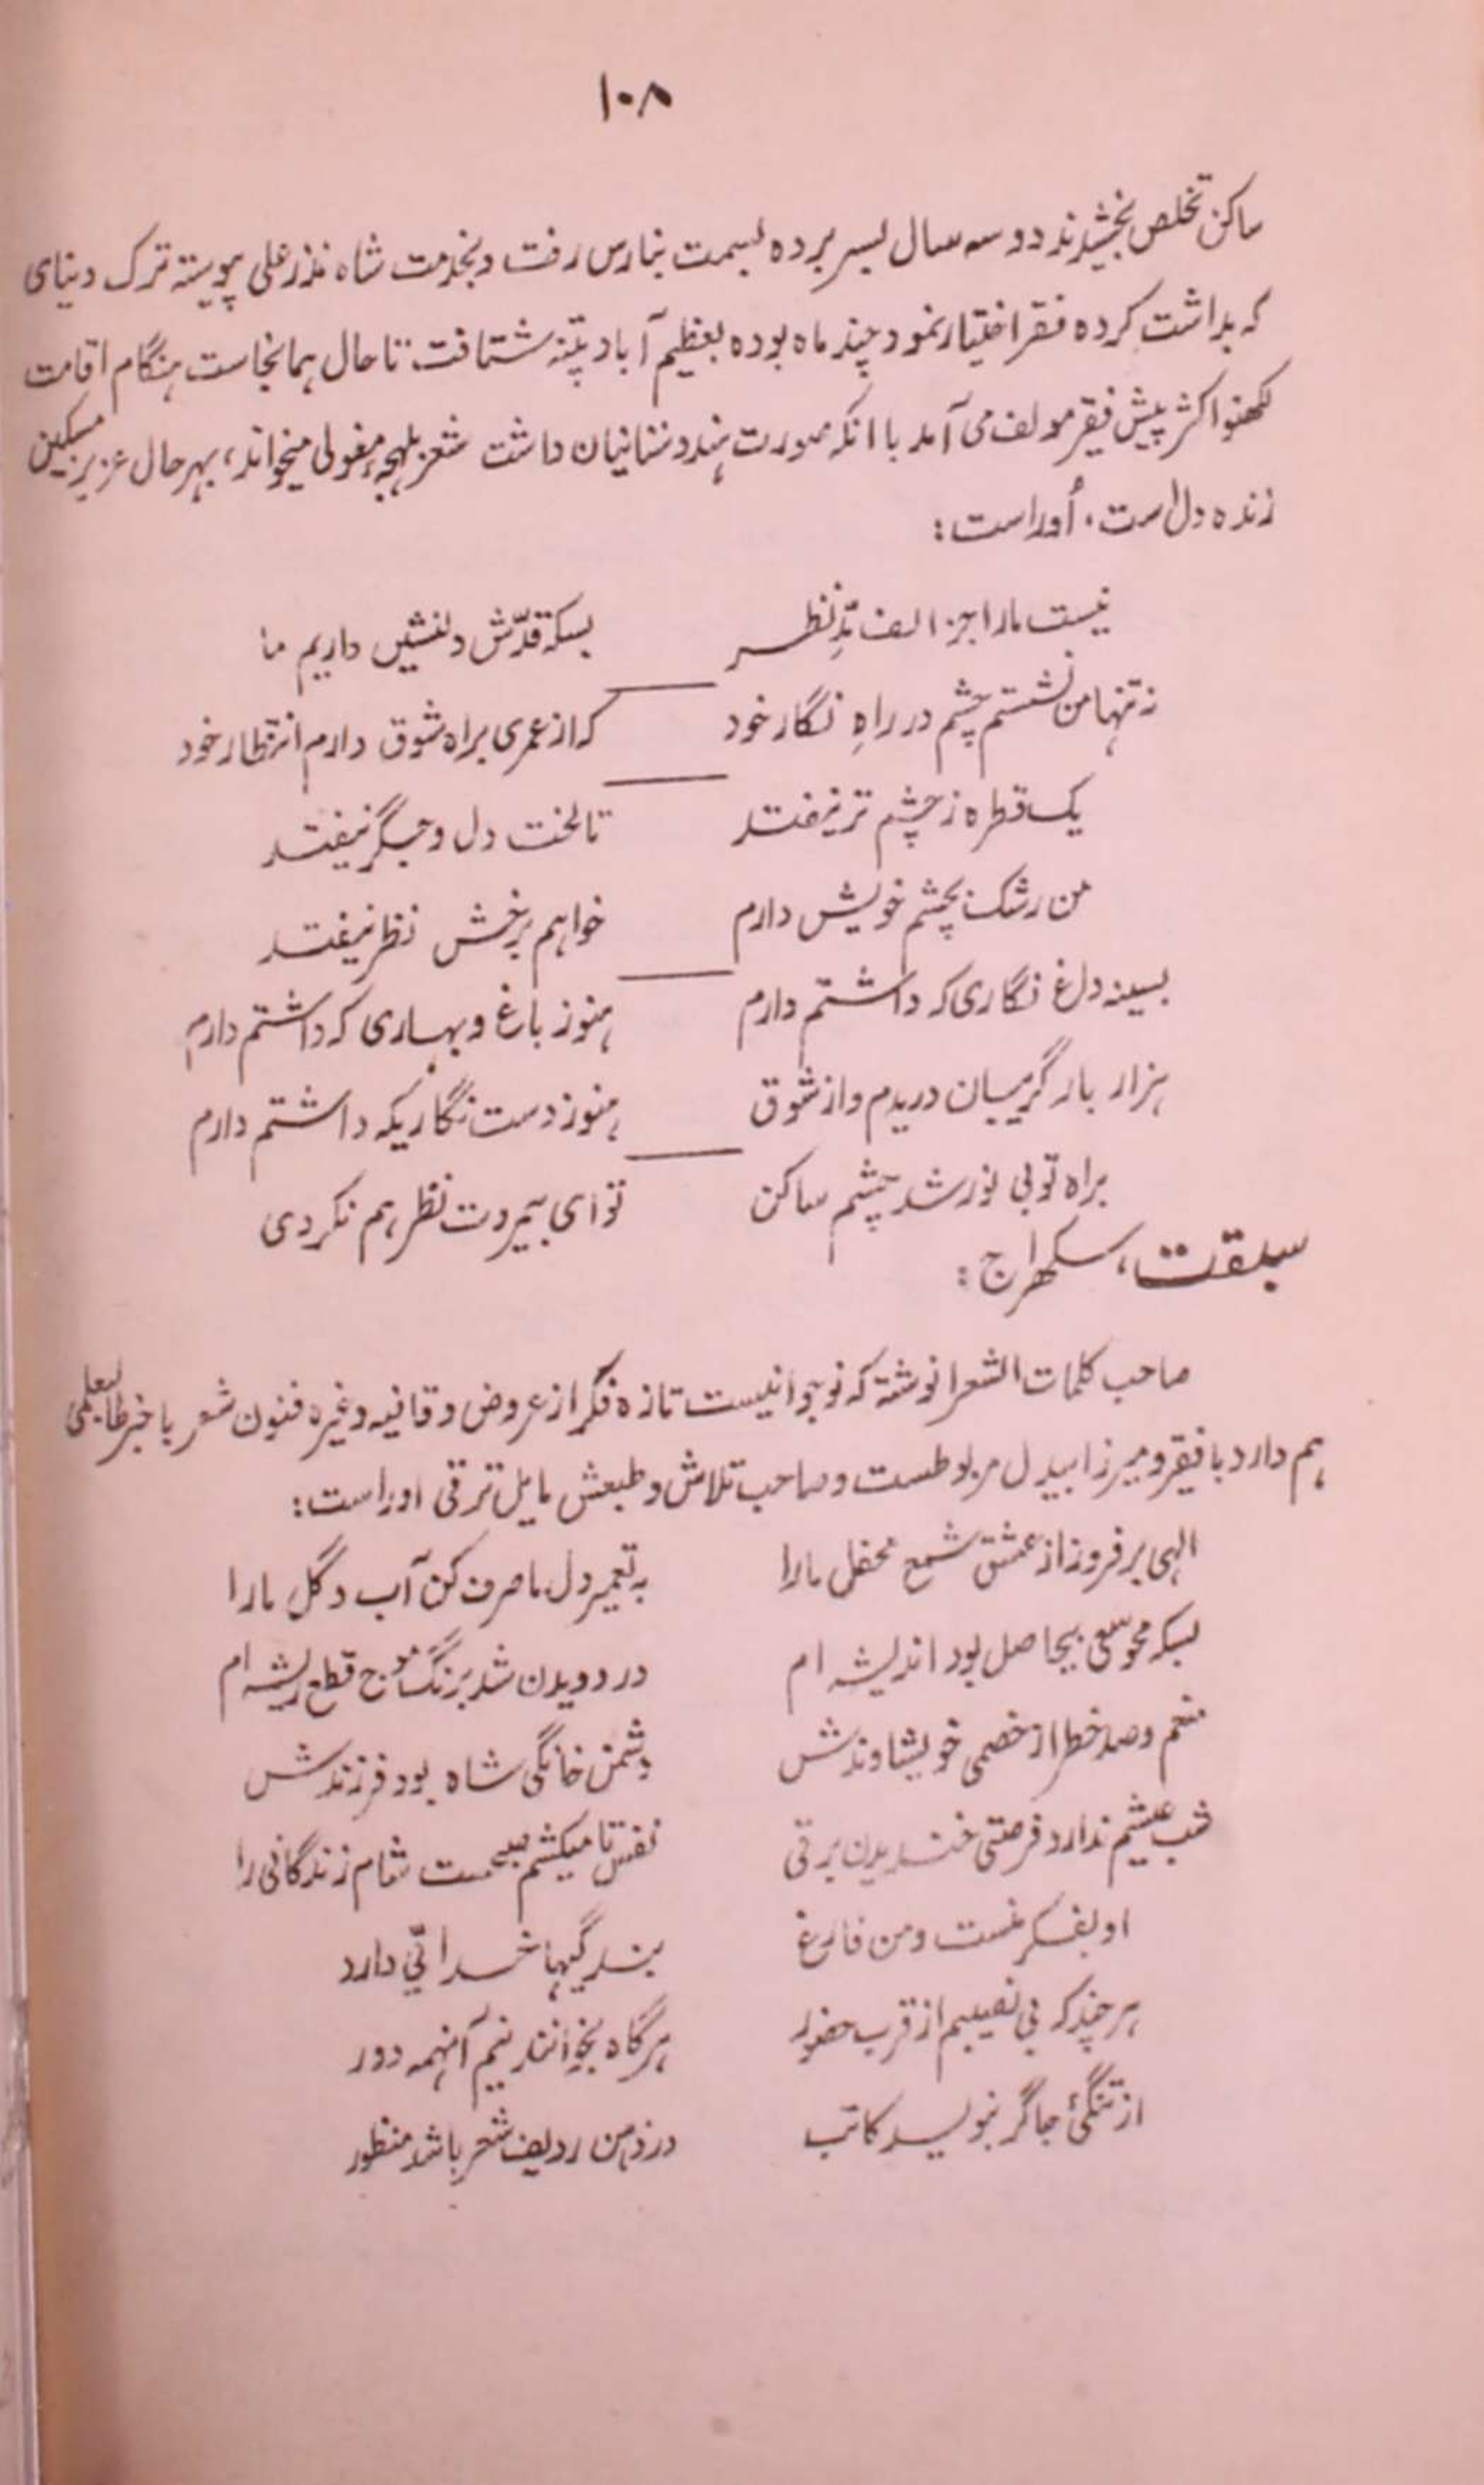 ۱۰۸
ساکن تخلص بخشیدند دو سه سال بسر برده بسمت بنارس رفت و بخدمت شاه نذر علی پیوسته ترک دنیای
که بداشت کرده فقر اختیار نمود چند ماه بوده بعظیم آباد پتنه شتافت تا حال همانجاست هنگام اقامت
لکھنو اکثر پیش فقیر مولف می آمد با آنکه صورت هندوستانیان داشت شعر بلهجهٔ مغولی میخواند، بهر حال عزیز مسکین
زنده دل است، اُوراست:
نیست ما را جز الف مدِّ نظر بسکه قدّش دلنشیں داریم ما
نه تنها من نشستم چشم در راهِ نگار خود که از عمری براه شوق دارم انتظار خود
یک قطره ز چشم تر نیفتد تا لخت دل و جگر نیفتد
من رشک بچشم خویش دارم خواهم برخش نظر نیفتد
بسینه داغ نگاری که داشتم دارم هنوز باغ و بهاری که داشتم دارم
هزار بار گریبان دریدم و از شوق هنوز دست نگاریکه داشتم دارم
براه تو بی نور شد چشم ساکن تو ای بیمروت نظر هم نکردی
سبقت، سکھراج:
صاحب کلمات الشعرا نوشته که نوجوانیست تازه فکر از عروض و قافیه و غیره فنون شعر با خبر طالبعلمی
هم دارد با فقیر و میرزا بیدل مربوطست و صاحب تلاش و طبعش مایل ترقی اوراست:
الهی بر فروز از عشق شمع محفل ما را به تعمیر دل ما صرف کن آب و گل ما را
بسکه محو سعی بیحاصل بود اندیشه ام در دویدن شد برنگ موج قطع ریشه ام
منعم و صد خطر از خصمی خویشاوندش دشمن خانگی شاه بود فرزندش
شب عیشم ندارد فرصتی خندیدن برقی نفس تا میکشم صبحست شام زندگانی را
او بفکر منست و من فارغ بندگیها خدائی دارد
هر چند که بی نصیبم از قرب حضور هرگاه بخوانند نیم آنهمه دور
از تنگئ جا گر ننویسد کاتب در ذهن ردیف شعر باشد منظور